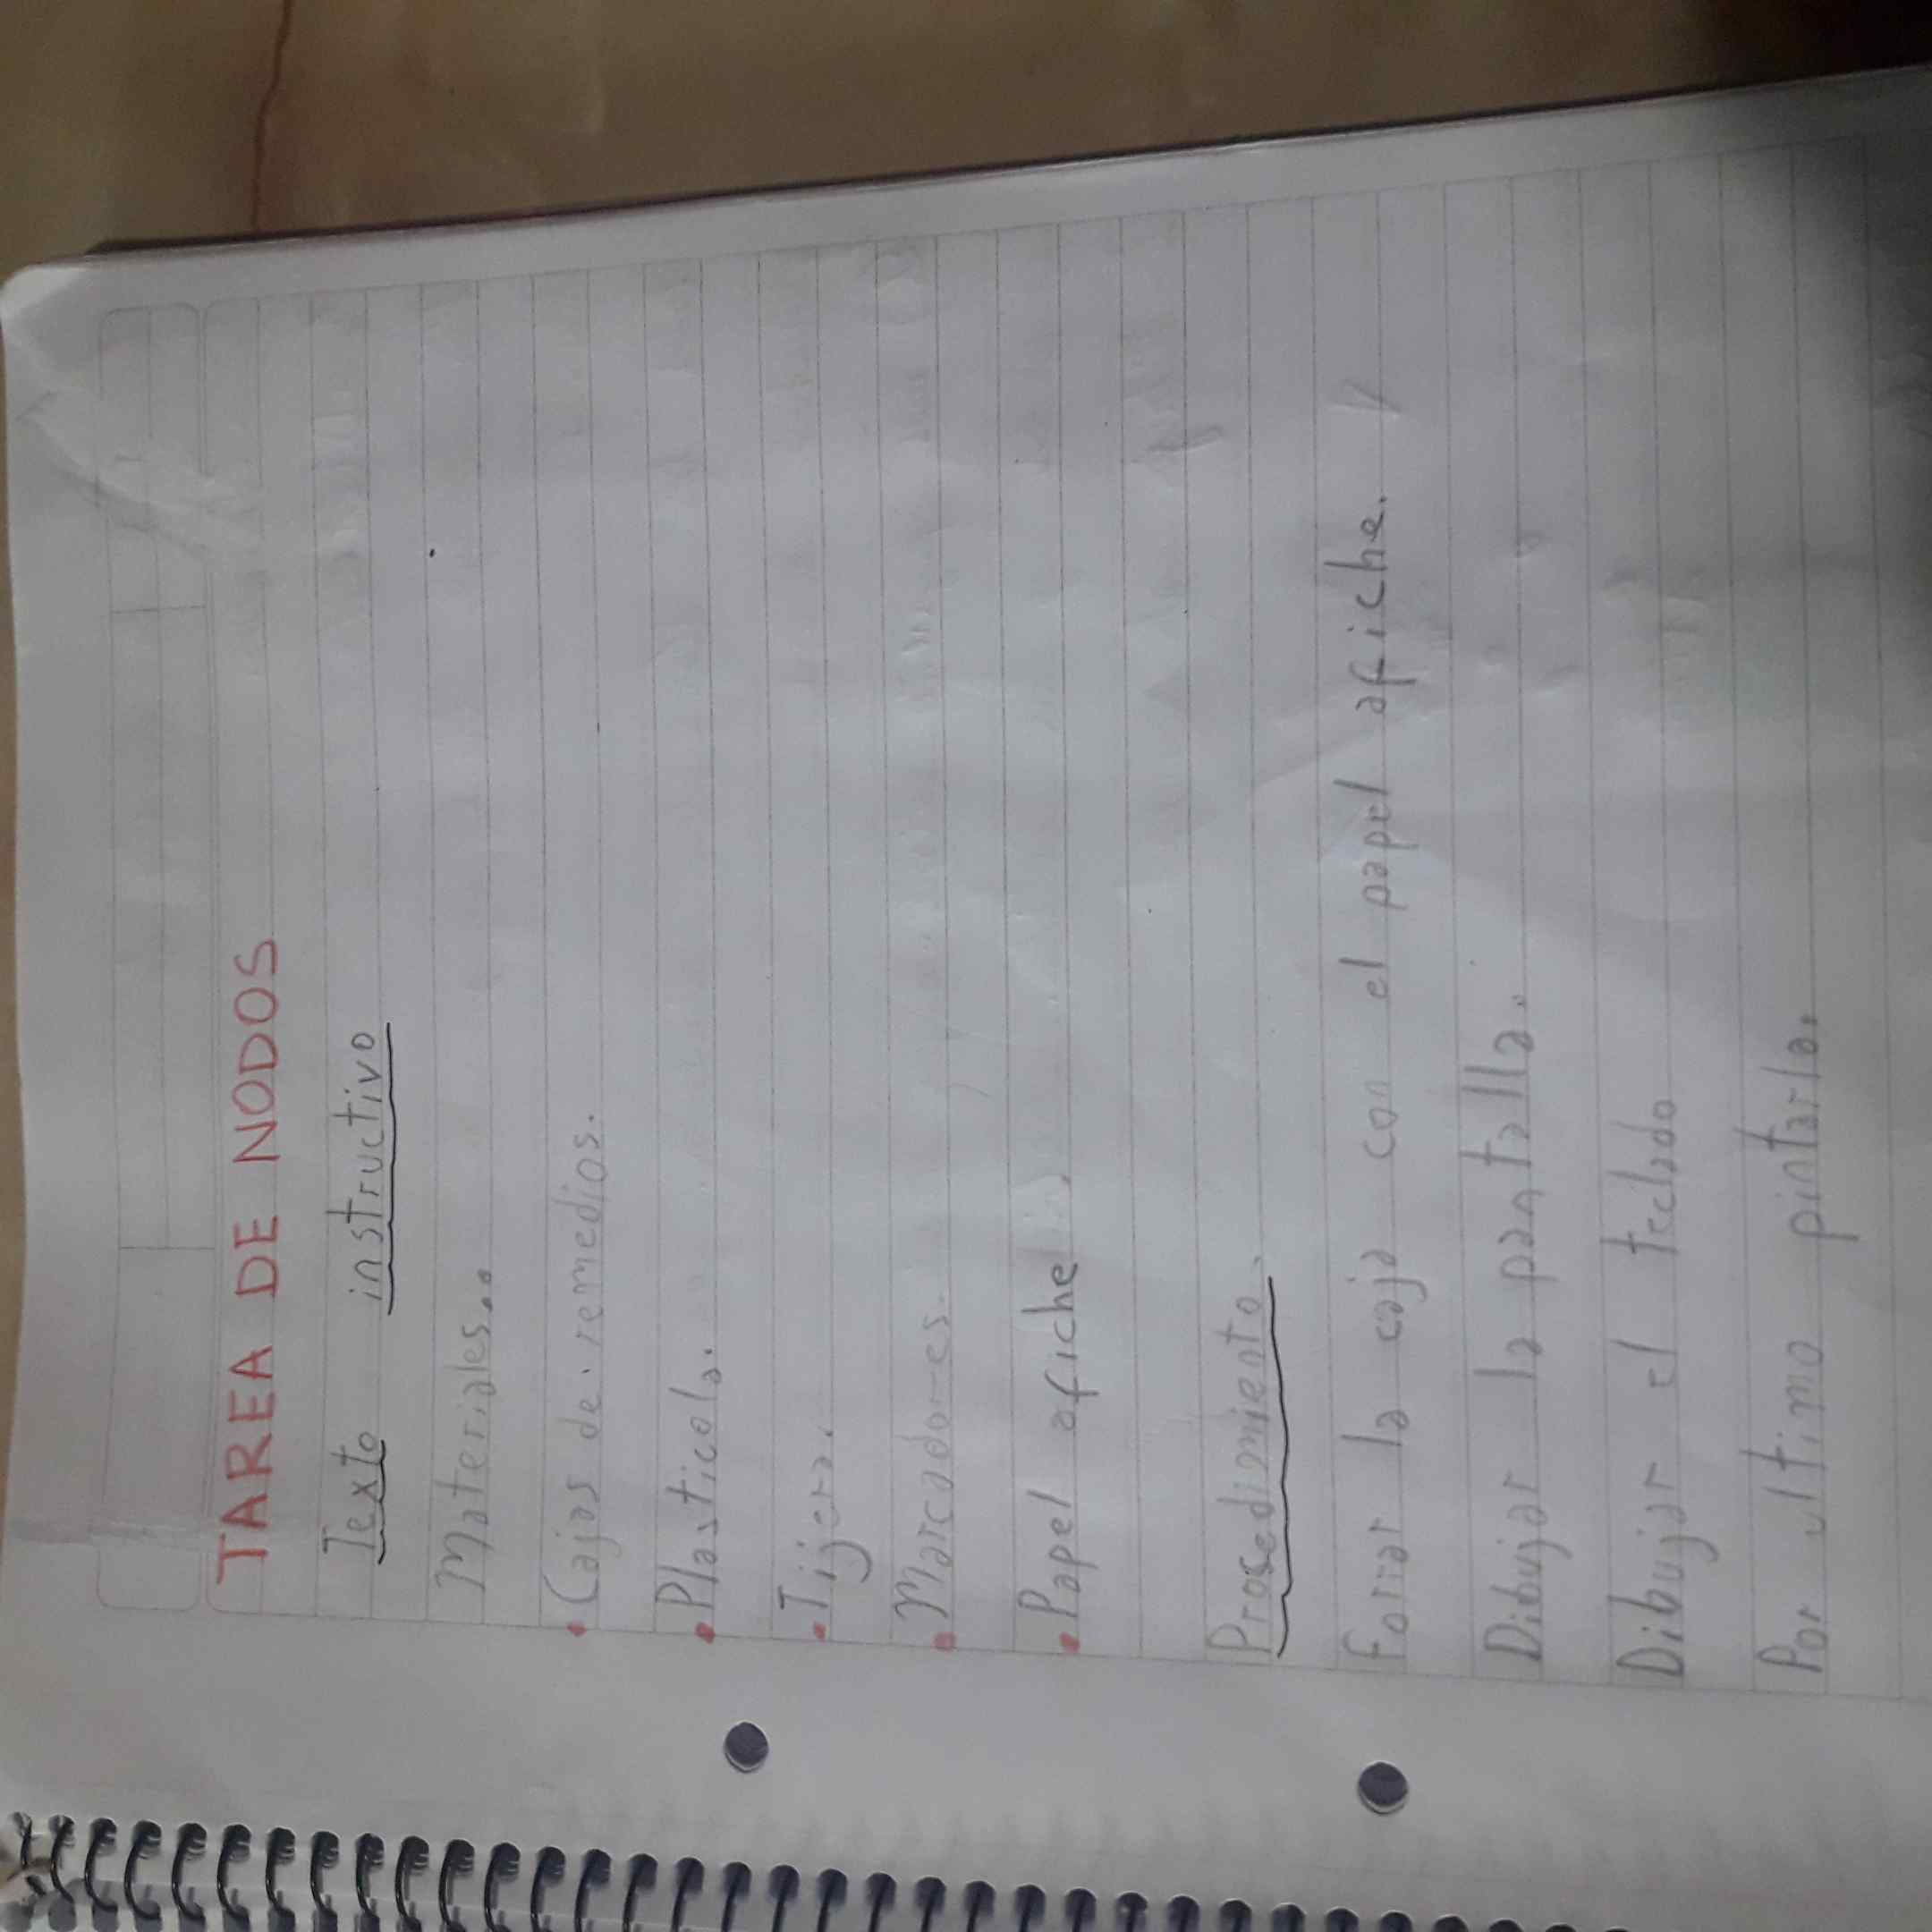 TAREA DE NODOS
Texto instructivo
Materiales...
• Cajas de remedios.
• Plasticola.
• Tijera.
• Marcadores.
• Papel afiche.
Prosedimiento.
Forrar la caja con el papel afiche.
Dibujar la pantalla.
Dibujar el teclado
Por ultimo pintarla.